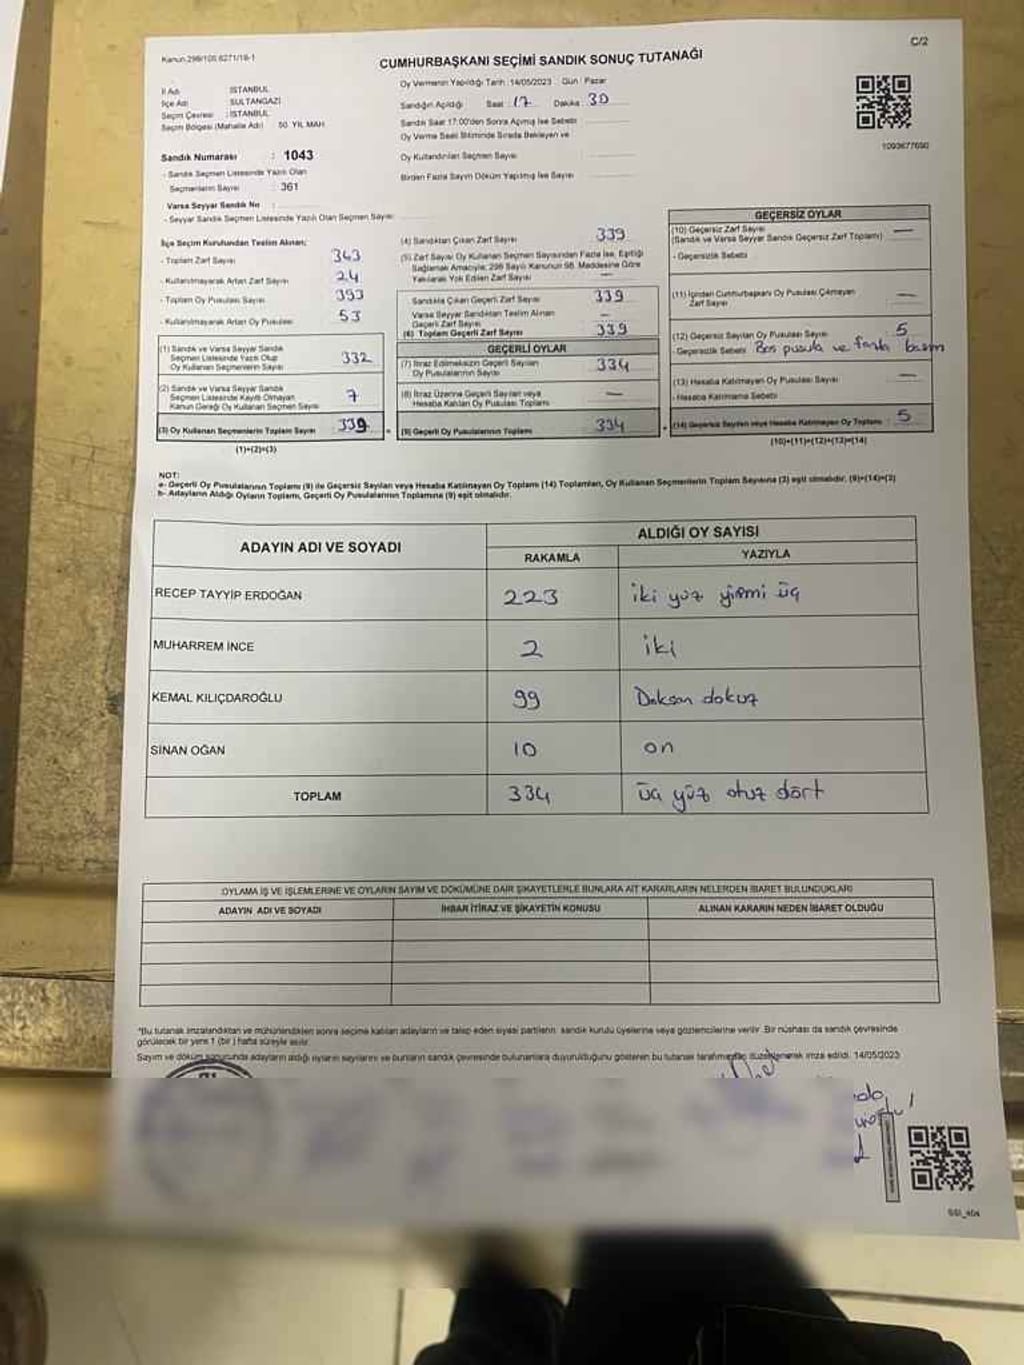 Kanun.298/105.6271/19-1
C/2
CUMHURBAŞKANI SEÇİMİ SANDIK SONUÇ TUTANAĞI
İl Adı : İSTANBUL
İlçe Adı : SULTANGAZİ
Seçim Çevresi : İSTANBUL
Seçim Bölgesi (Mahalle Adı) 50. YIL MAH.
Sandık Numarası : 1043
- Sandık Seçmen Listesinde Yazılı Olan
Seçmenlerin Sayısı : 361
Varsa Seyyar Sandık No :
- Seyyar Sandık Seçmen Listesinde Yazılı Olan Seçmen Sayısı:
Oy Vermenin Yapıldığı Tarih : 14/05/2023 Gün : Pazar
Sandığın Açıldığı Saat : 17 Dakika : 30
Sandık Saat 17:00'den Sonra Açılmış İse Sebebi
Oy Verme Saati Bitiminde Sırada Bekleyen ve
Oy Kullandırılan Seçmen Sayısı
Birden Fazla Sayım Döküm Yapılmış İse Sayısı
1093677690
İlçe Seçim Kurulundan Teslim Alınan;
- Toplam Zarf Sayısı 363
- Kullanılmayarak Artan Zarf Sayısı 24
- Toplam Oy Pusulası Sayısı 393
- Kullanılmayarak Artan Oy Pusulası 53
(1) Sandık ve Varsa Seyyar Sandık
Seçmen Listesinde Yazılı Olup
Oy Kullanan Seçmenlerin Sayısı 332
(2) Sandık ve Varsa Seyyar Sandık
Seçmen Listesinde Kayıtlı Olmayan
Kanun Gereği Oy Kullanan Seçmen Sayısı 7
(3) Oy Kullanan Seçmenlerin Toplam Sayısı 339
(1)+(2)=(3)
(4) Sandıktan Çıkan Zarf Sayısı 339
(5) Zarf Sayısı Oy Kullanan Seçmen Sayısından Fazla İse, Eşitliği
Sağlamak Amacıyla; 298 Sayılı Kanunun 98. Maddesine Göre
Yakılarak Yok Edilen Zarf Sayısı —
Sandıkta Çıkan Geçerli Zarf Sayısı 339
Varsa Seyyar Sandıktan Teslim Alınan
Geçerli Zarf Sayısı —
(6) Toplam Geçerli Zarf Sayısı 339
GEÇERLİ OYLAR
(7) İtiraz Edilmeksizin Geçerli Sayılan
Oy Pusulalarının Sayısı 334
(8) İtiraz Üzerine Geçerli Sayılan veya
Hesaba Katılan Oy Pusulası Toplamı —
(9) Geçerli Oy Pusulalarının Toplamı 334
GEÇERSİZ OYLAR
(10) Geçersiz Zarf Sayısı —
(Sandık ve Varsa Seyyar Sandık Geçersiz Zarf Toplamı)
- Geçersizlik Sebebi
(11) İçinden Cumhurbaşkanı Oy Pusulası Çıkmayan
Zarf Sayısı —
(12) Geçersiz Sayılan Oy Pusulası Sayısı 5
- Geçersizlik Sebebi Boş pusula ve fazla basım
(13) Hesaba Katılmayan Oy Pusulası Sayısı —
- Hesaba Katılmama Sebebi
(14) Geçersiz Sayılan veya Hesaba Katılmayan Oy Toplamı 5
(10)+(11)+(12)+(13)=(14)
NOT:
a- Geçerli Oy Pusulalarının Toplamı (9) ile Geçersiz Sayılan veya Hesaba Katılmayan Oy Toplamı (14) Toplamları, Oy Kullanan Seçmenlerin Toplam Sayısına (3) eşit olmalıdır. (9)+(14)=(3)
b- Adayların Aldığı Oyların Toplamı, Geçerli Oy Pusulalarının Toplamına (9) eşit olmalıdır.
ADAYIN ADI VE SOYADI
ALDIĞI OY SAYISI
RAKAMLA YAZIYLA
RECEP TAYYİP ERDOĞAN 223 iki yüz yirmi üç
MUHARREM İNCE 2 iki
KEMAL KILIÇDAROĞLU 99 Doksan dokuz
SİNAN OĞAN 10 on
TOPLAM 334 üç yüz otuz dört
OYLAMA İŞ VE İŞLEMLERİNE VE OYLARIN SAYIM VE DÖKÜMÜNE DAİR ŞİKAYETLERLE BUNLARA AİT KARARLARIN NELERDEN İBARET BULUNDUKLARI
ADAYIN ADI VE SOYADI İHBAR İTİRAZ VE ŞİKAYETİN KONUSU ALINAN KARARIN NEDEN İBARET OLDUĞU
*Bu tutanak imzalandıktan ve mühürlendikten sonra seçime katılan adayların ve talep eden siyasi partilerin sandık kurulu üyelerine veya gözlemcilerine verilir. Bir nüshası da sandık çevresinde
görülecek bir yere 1 (bir) hafta süreyle asılır.
Sayım ve döküm sonucunda adayların aldığı oyların sayılarını ve bunların sandık çevresinde bulunanlara duyurulduğunu gösteren bu tutanak tarafımızdan düzenlenerek imza edildi. 14/05/2023
SSI_404